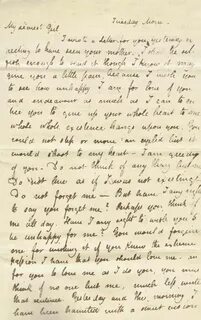 Tuesday Morn.
My dearest Girl,
I wrote a Letter for you yesterday
expecting to have seen your mother. I shall be sel
fish enough to send it though I know it may
give you a little pain, because I wish you
to see how unhappy I am for love of you
and endeavour as much as I can to en
tice you to give up your whole heart to me
whose whole existence hangs upon you. You
could not step or move an eyelid but it
would shoot to my heart - I am greedy
of you - Do not think of any thing but me.
Do not live as if I was not existing -
Do not forget me - But have I any right
to say you forget me? Perhaps you think of
me all day. Have I any right to wish you to
be unhappy for me? You would forgive
me for wishing it if you knew the extreme
passion I have that you should love me - and
for you to love me as I do you, you must
think of no one but me, much less write
that sentence. Yesterday and this morning I
have been haunted with a sweet vision